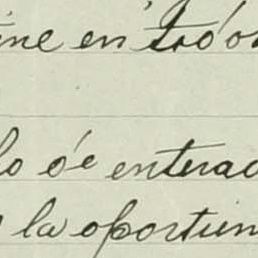 ine en todo
lo de enterad
la oportun